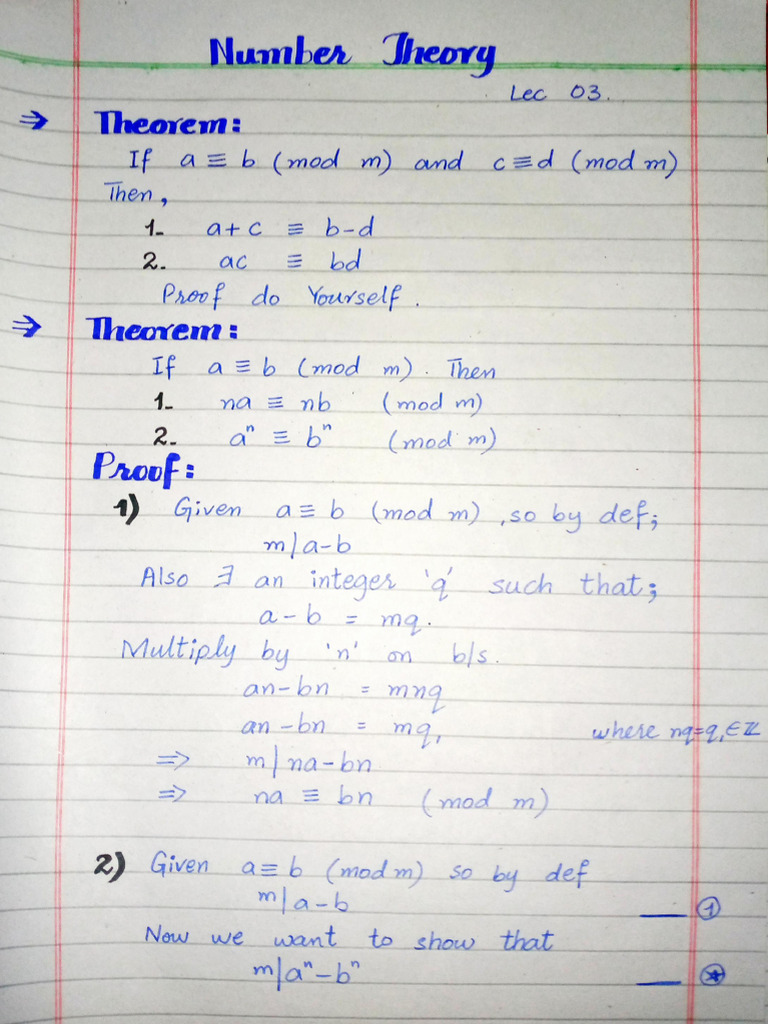 Number Theory
Lec 03.
⇒ Theorem:
If a ≡ b (mod m) and c ≡ d (mod m)
Then,
1- a+c ≡ b-d
2. ac ≡ bd
Proof do Yourself.
⇒ Theorem:
If a ≡ b (mod m). Then
1- na ≡ nb (mod m)
2- aⁿ ≡ bⁿ (mod m)
Proof:
1) Given a ≡ b (mod m), so by def;
m|a-b
Also ∃ an integer 'q' such that;
a-b = mq.
Multiply by 'n' on b/s.
an-bn = mnq
an-bn = mq, where nq=q,∈ℤ
⇒ m|na-bn
⇒ na ≡ bn (mod m)
2) Given a ≡ b (mod m) so by def
m|a-b — ①
Now we want to show that
m|aⁿ-bⁿ — ⍟